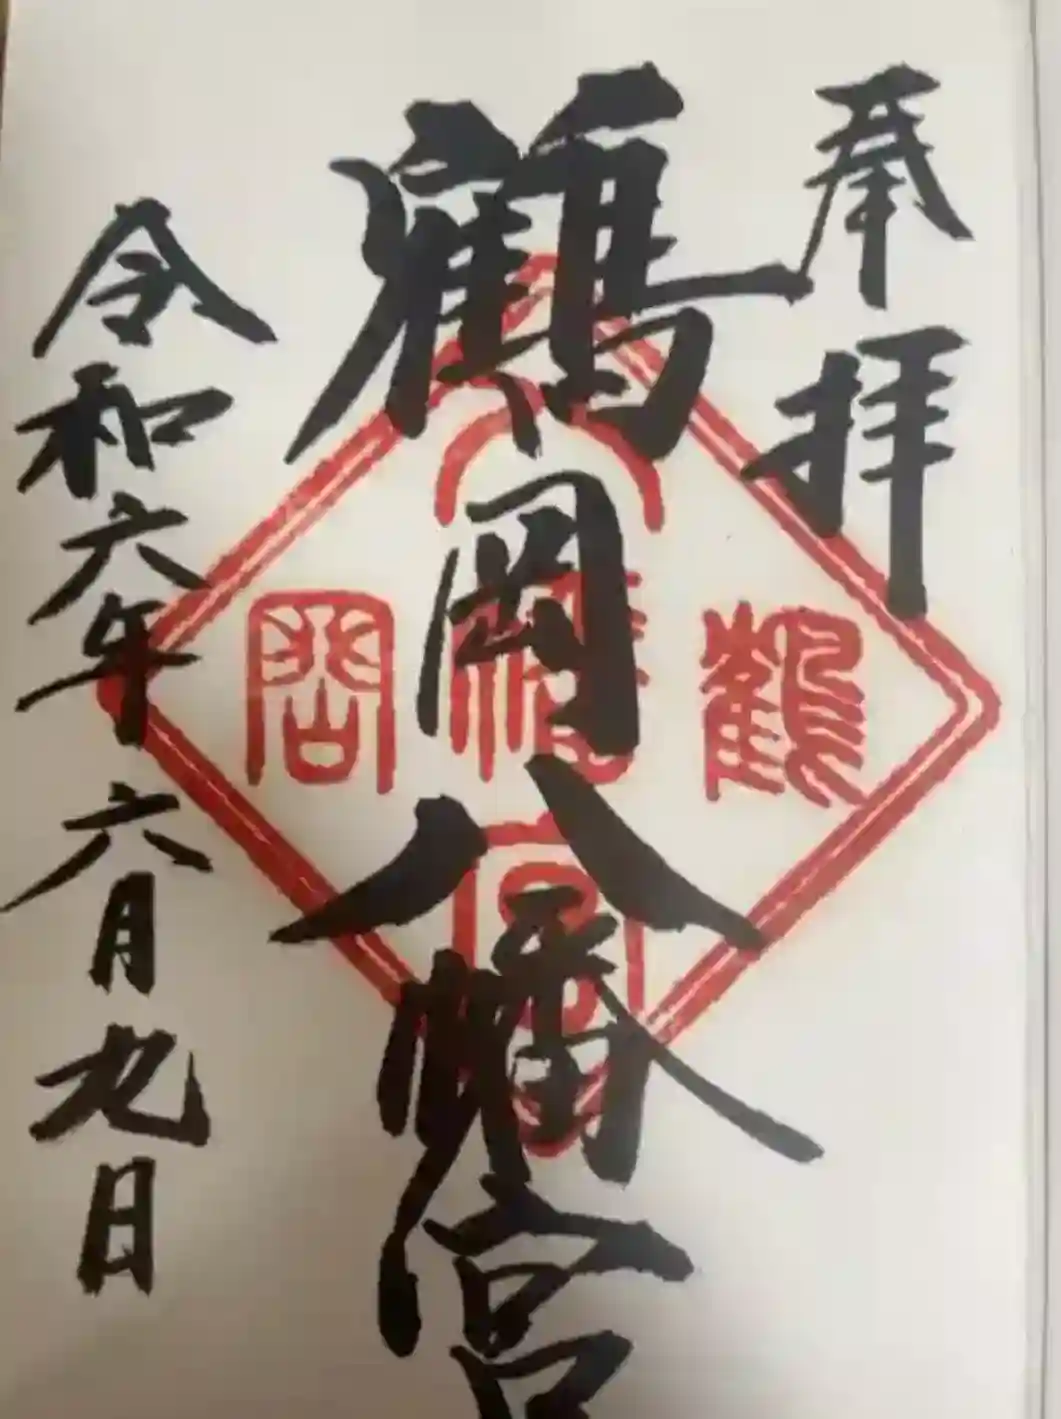 奉拝
鶴岡八幡宮
令和六年六月九日
鶴岡八幡宮